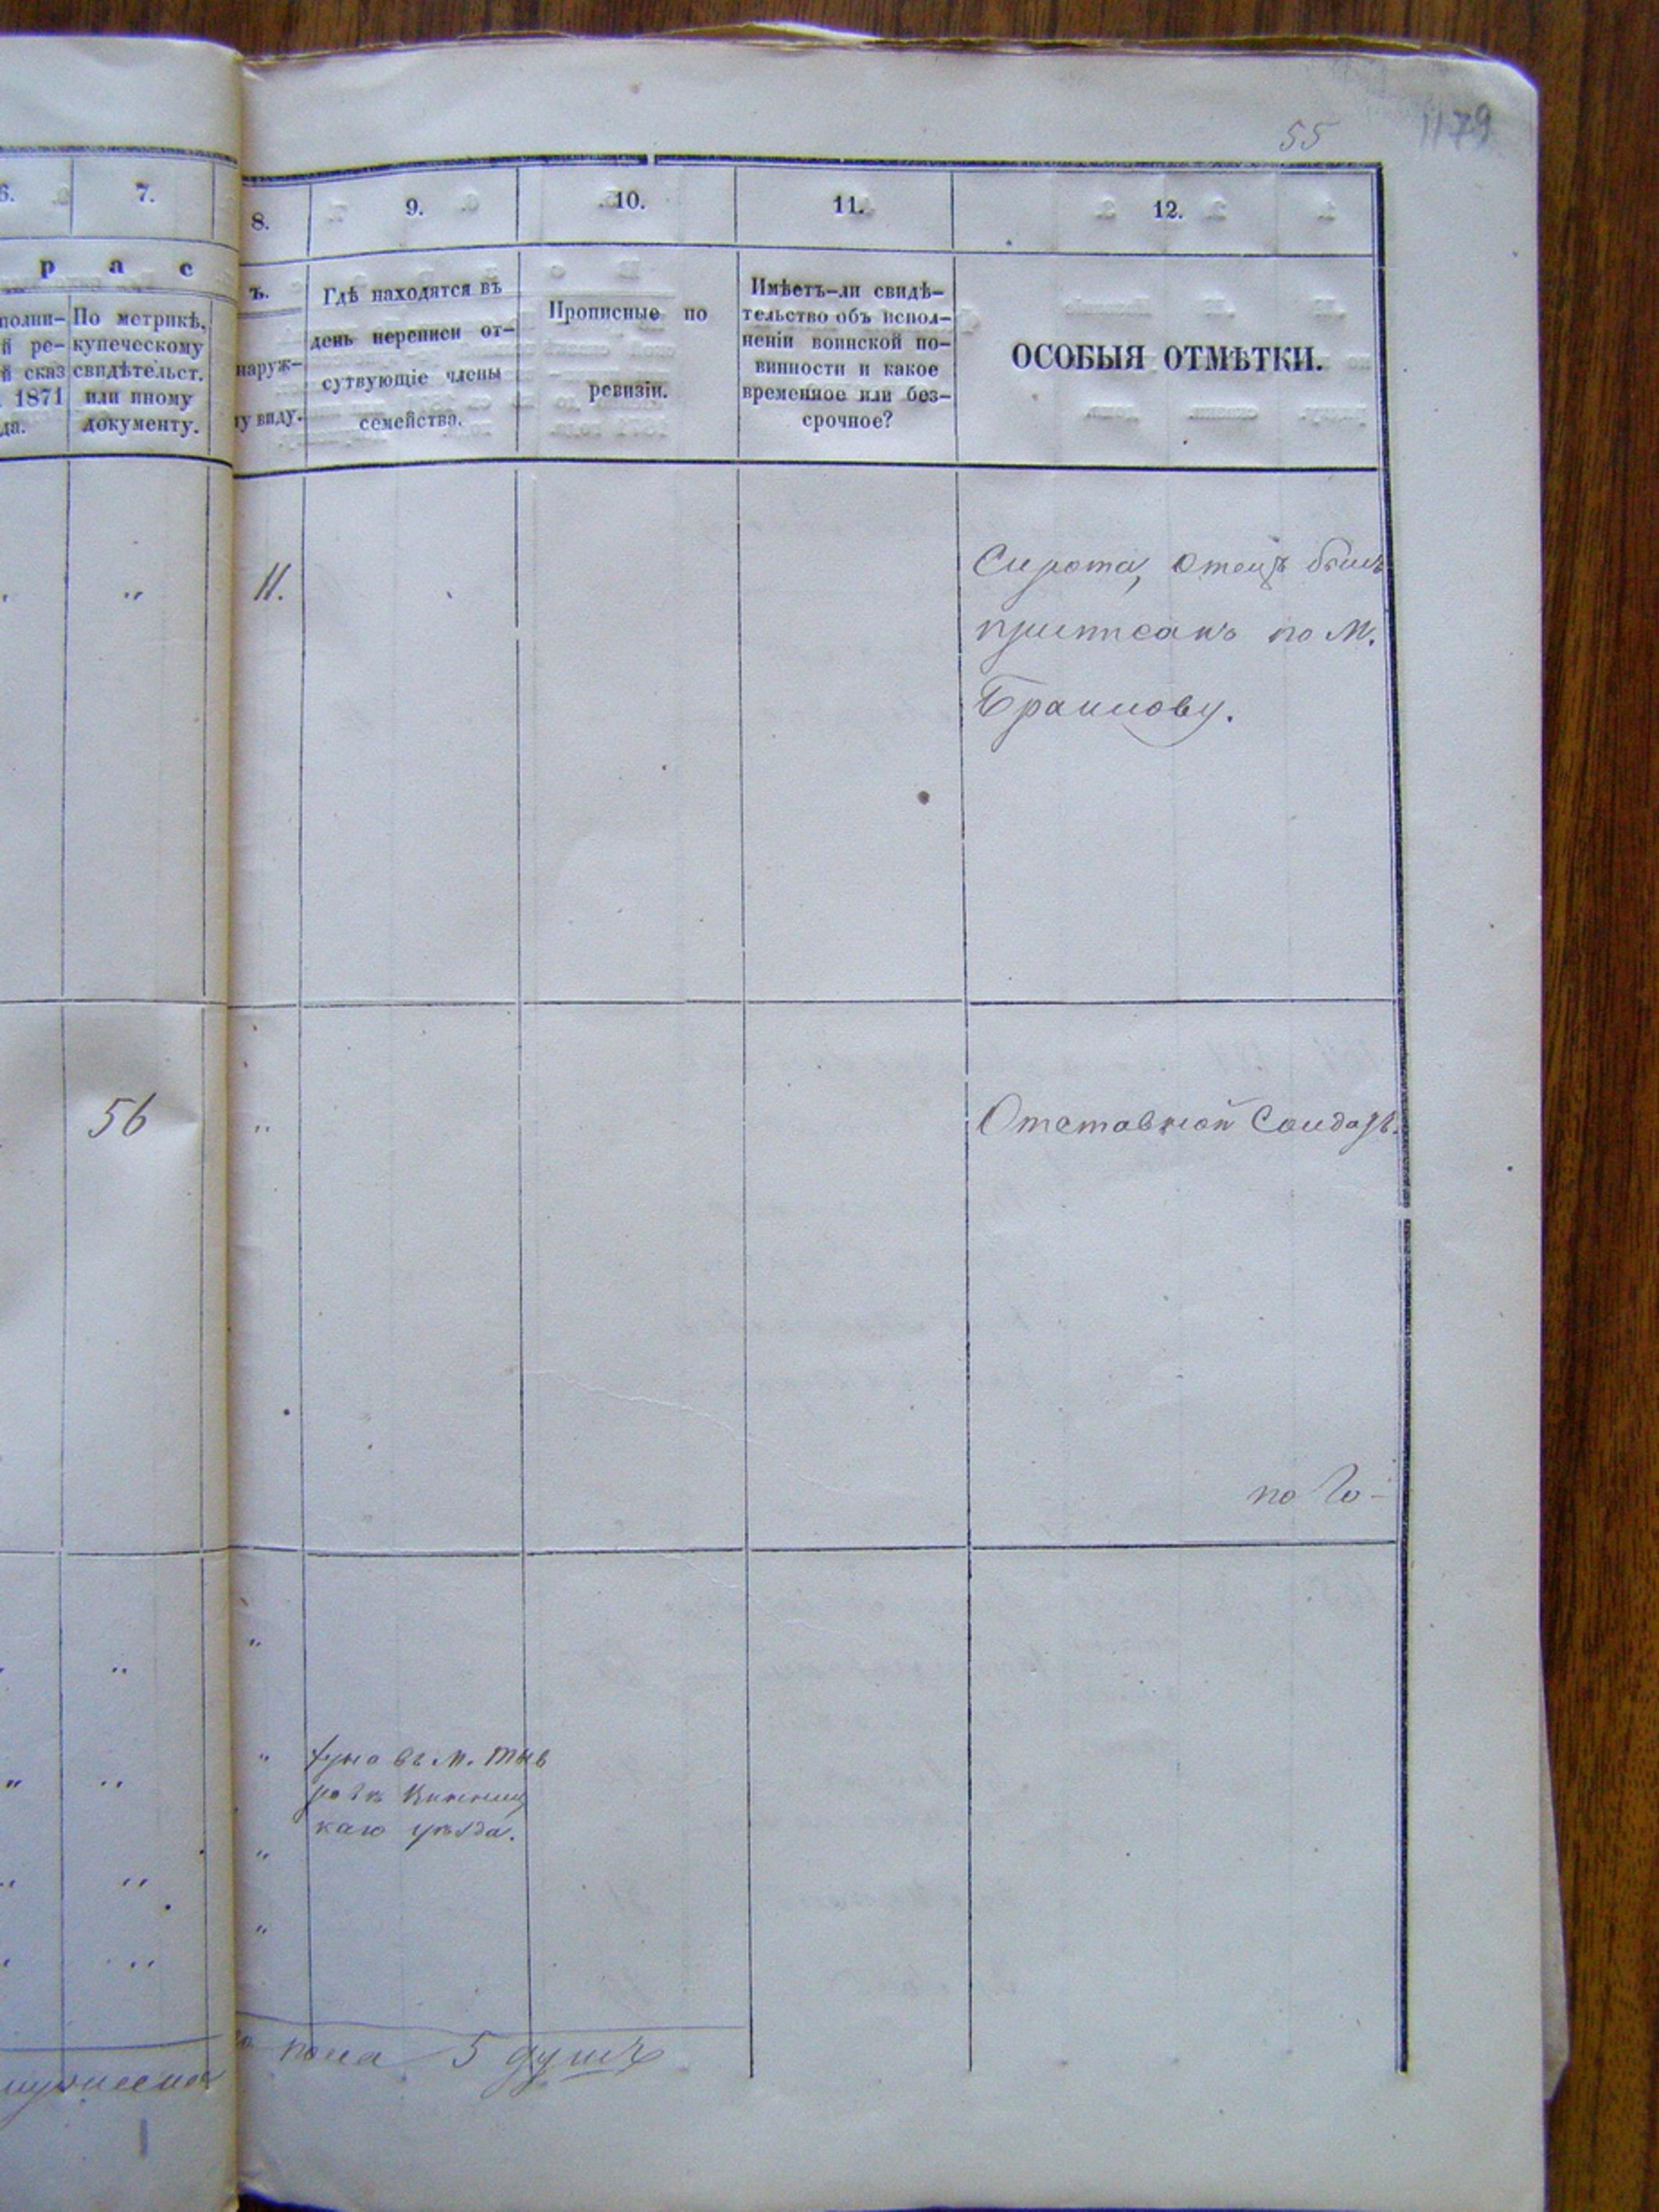 55
1179
6.
7.
8.
9.
10.
11.
12.
р а с
ъ.
полни-
й ре-
й сказ
1871
да.
По метрикѣ,
купеческому
свидѣтельст.
или иному
документу.
наруж-
му виду.
Гдѣ находятся въ
день переписи от-
сутвующіе члены
семейства.
Прописные по
ревизіи.
Имѣетъ-ли свидѣ-
тельство объ испол-
неніи воинской по-
винности и какое
временное или без-
срочное?
ОСОБЫЯ ОТМѢТКИ.
11.
Сирота, отецъ былъ
приписанъ по м.
Браилову.
56
Отставной Солдатъ.
по
въ м. Тыв
ровѣ Винниц
каго уѣзда.
пола 5 душъ
мужескаго